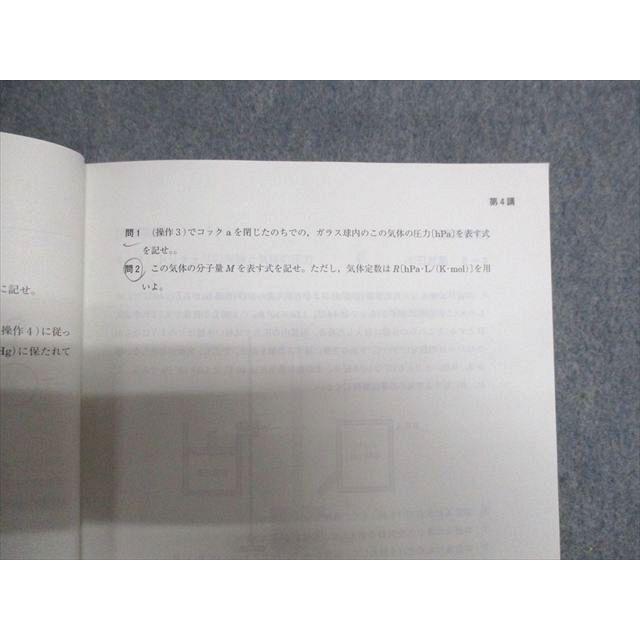 第4講
問1 (操作3)でコックaを閉じたのちでの，ガラス球内のこの気体の圧力[hPa]を表す式
を記せ。。
問2 この気体の分子量Mを表す式を記せ。ただし，気体定数はR[hPa·L/(K·mol)]を用
いよ。
に記せ。
操作4)に従っ
Hg)に保たれて